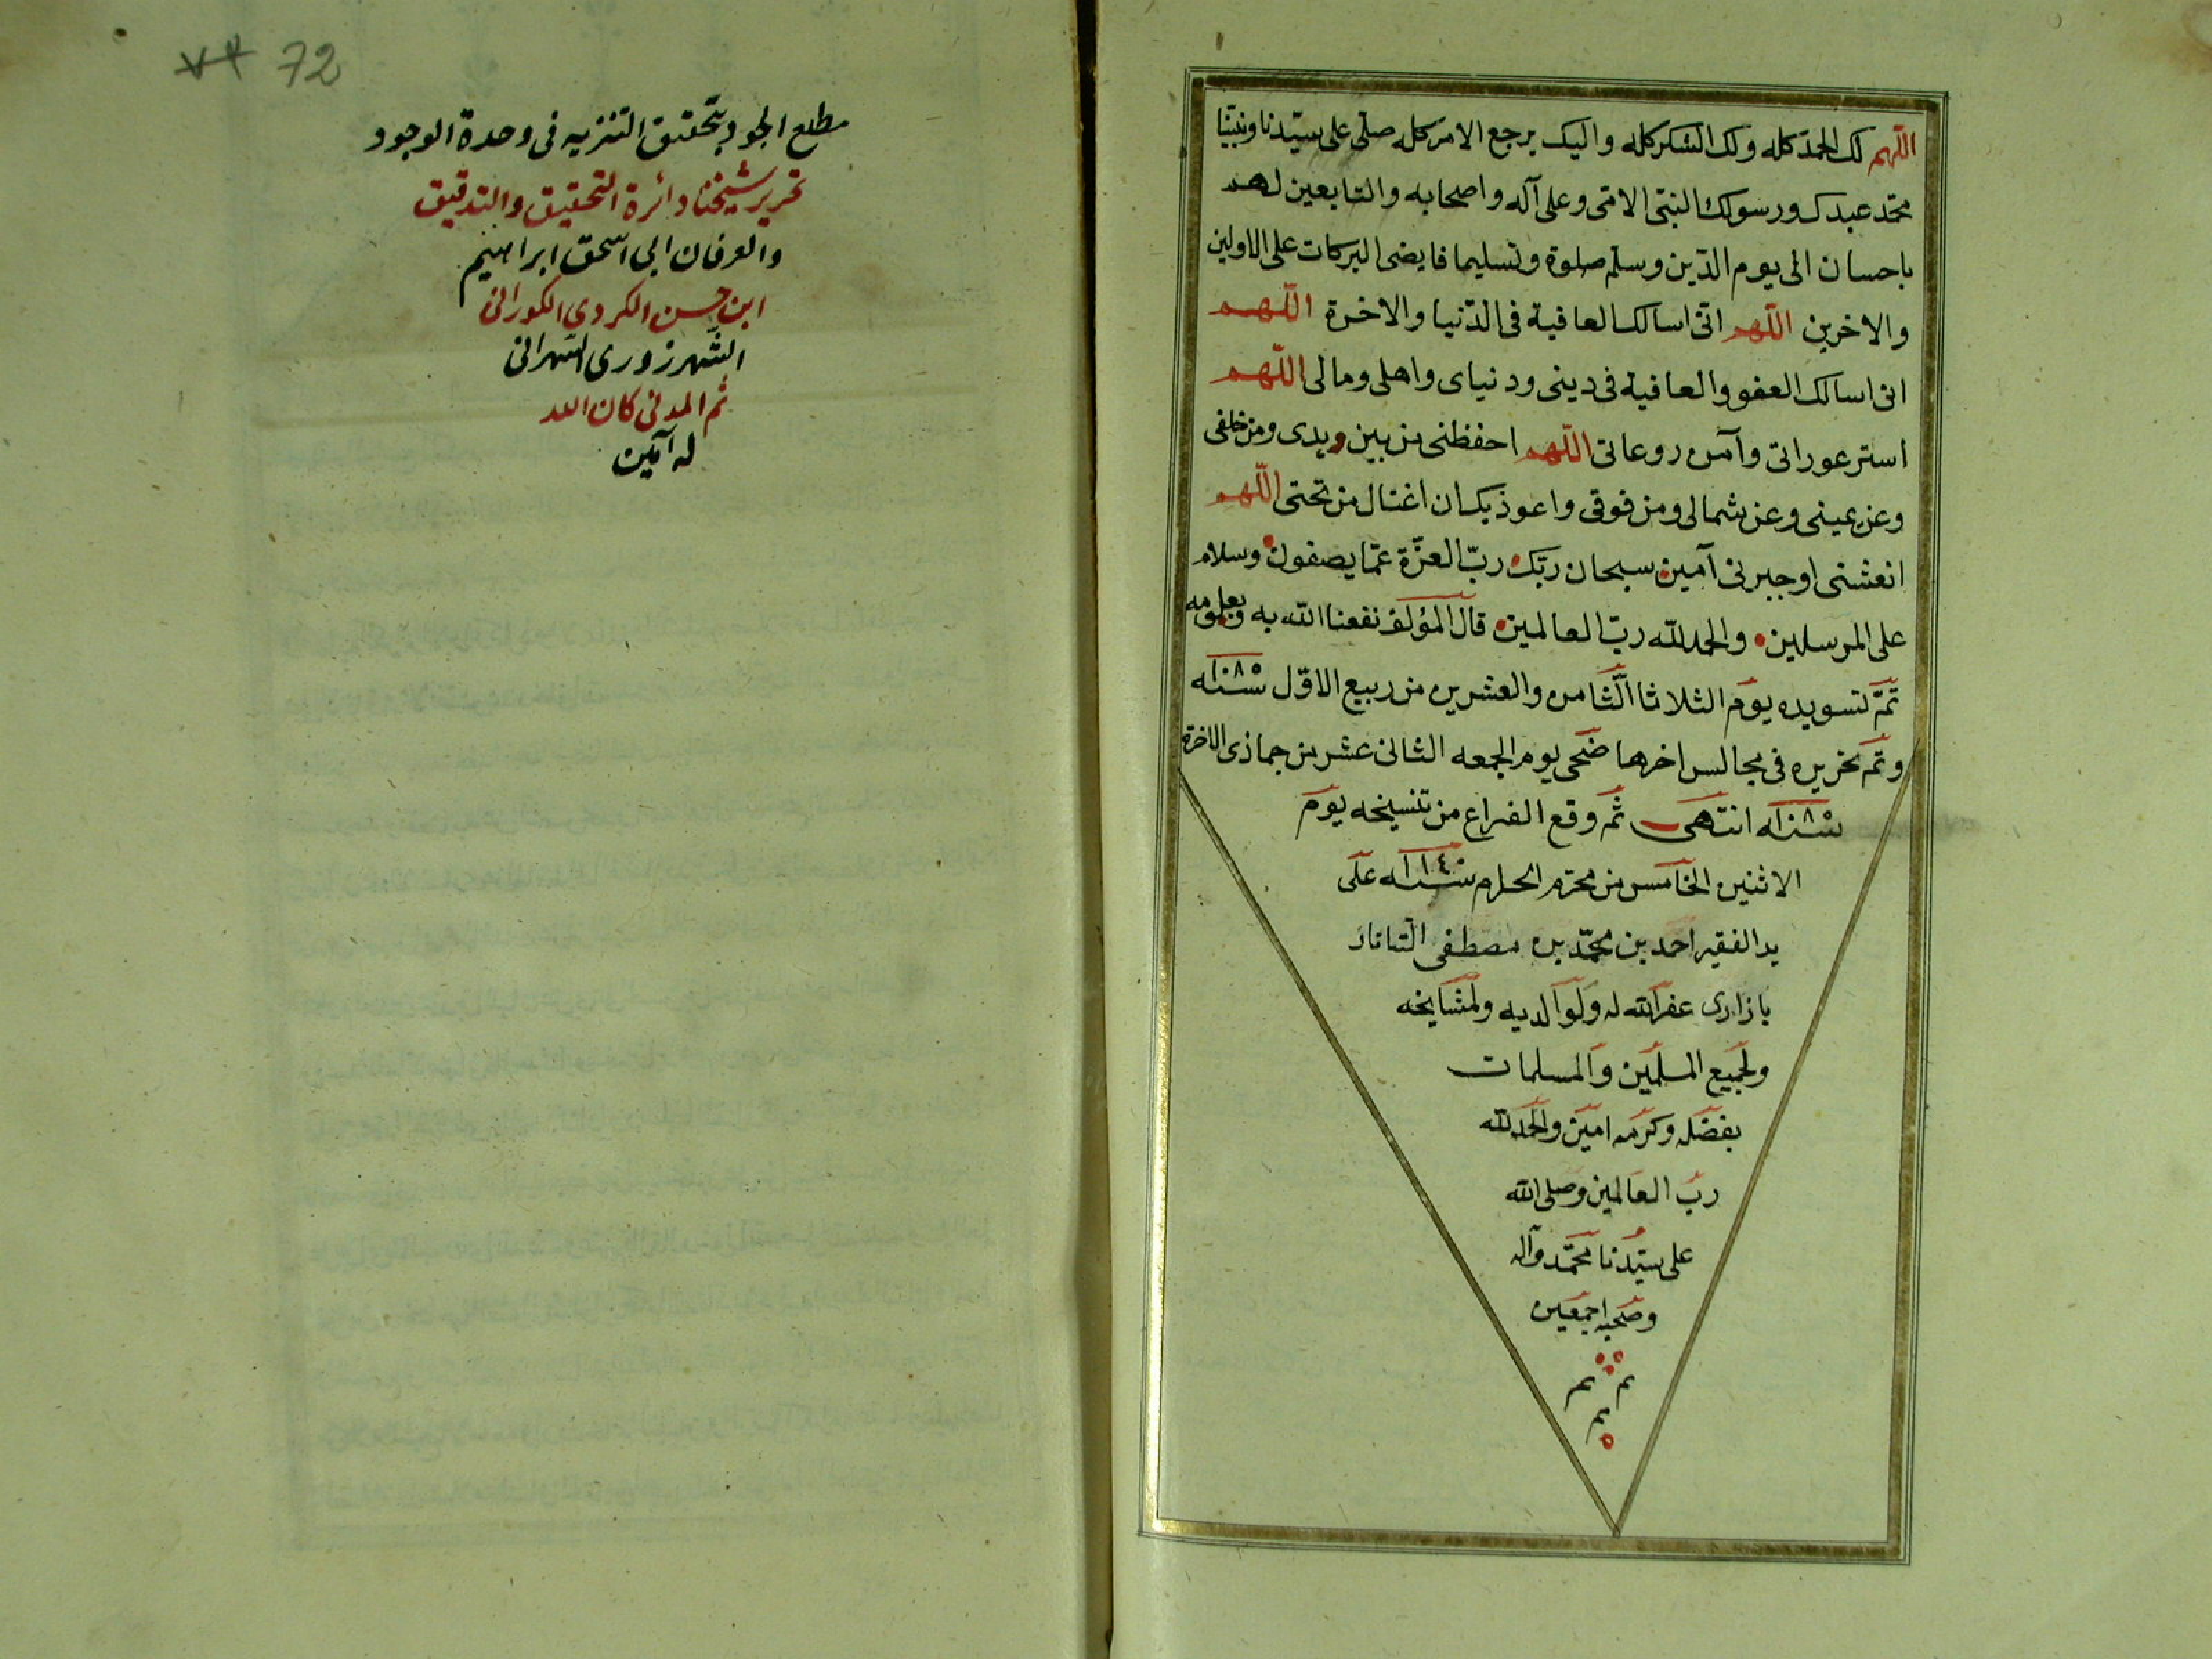 اللّهم لك الحمد كله ولك الشكر كله واليك يرجع الامر كله صلّى على سيّدنا ونبيّنا
محمّد عبدك ورسولك النبّى الامّى وعلى آله واصحابه والتابعين لهم
باحسان الى يوم الدّين وسلّم صلوة وتسليما فايضى البركات على الاولين
والاخرين اللّهم انّى اسالك العافية فى الدّنيا والاخرة اللّهم
انى اسالك العفو والعافية فى دينى ودنياى واهلى ومالى اللّهم
استر عوراتى وآمن روعاتى اللّهم احفظنى من بين يدى ومن خلفى
وعن يمينى وعن شمالى ومن فوقى واعوذ بك ان اغتال من تحتى اللّهم
انعشنى اوجبرنى آمين سبحان ربّك ربّ العزّة عمّا يصفون وسلام
على المرسلين والحمد للّه ربّ العالمين قال المؤلف نفعنا اللّه به وبعلومه
تمّ تسويده يوم الثلاثا الثّامن والعشرين من ربيع الاوّل سنة ١٠٨٥
وتم تحريره فى مجالس اخرها ضحى يوم الجمعه الثانى عشر من جماذى الاخرة
سنة انتهى ثم وقع الفراغ من تنسيخه يوم
الاثنين الخامس من محرّم الحرام سنة ١١١٤ على
يد الفقير احمد بن محمّد بن مصطفى التاتار
بازارى غفر اللّه له ولوالديه ولمشايخه
ولجميع المسلمين والمسلمات
بفضله وكرمه امين والحمد للّه
ربّ العالمين وصلى اللّه
على سيّدنا محمّد وآله
وصحبه اجمعين
م م
م
72
مطلع الجود بتحقيق التنزيه فى وحدة الوجود
تحرير شيخنا دائرة التحقيق والتدقيق
والعرفان ابى اسحق ابراهيم
ابن حسن الكردى الكورانى
الشّهرزورى الشهرانى
ثم المدنى كان اللّه
له آمين